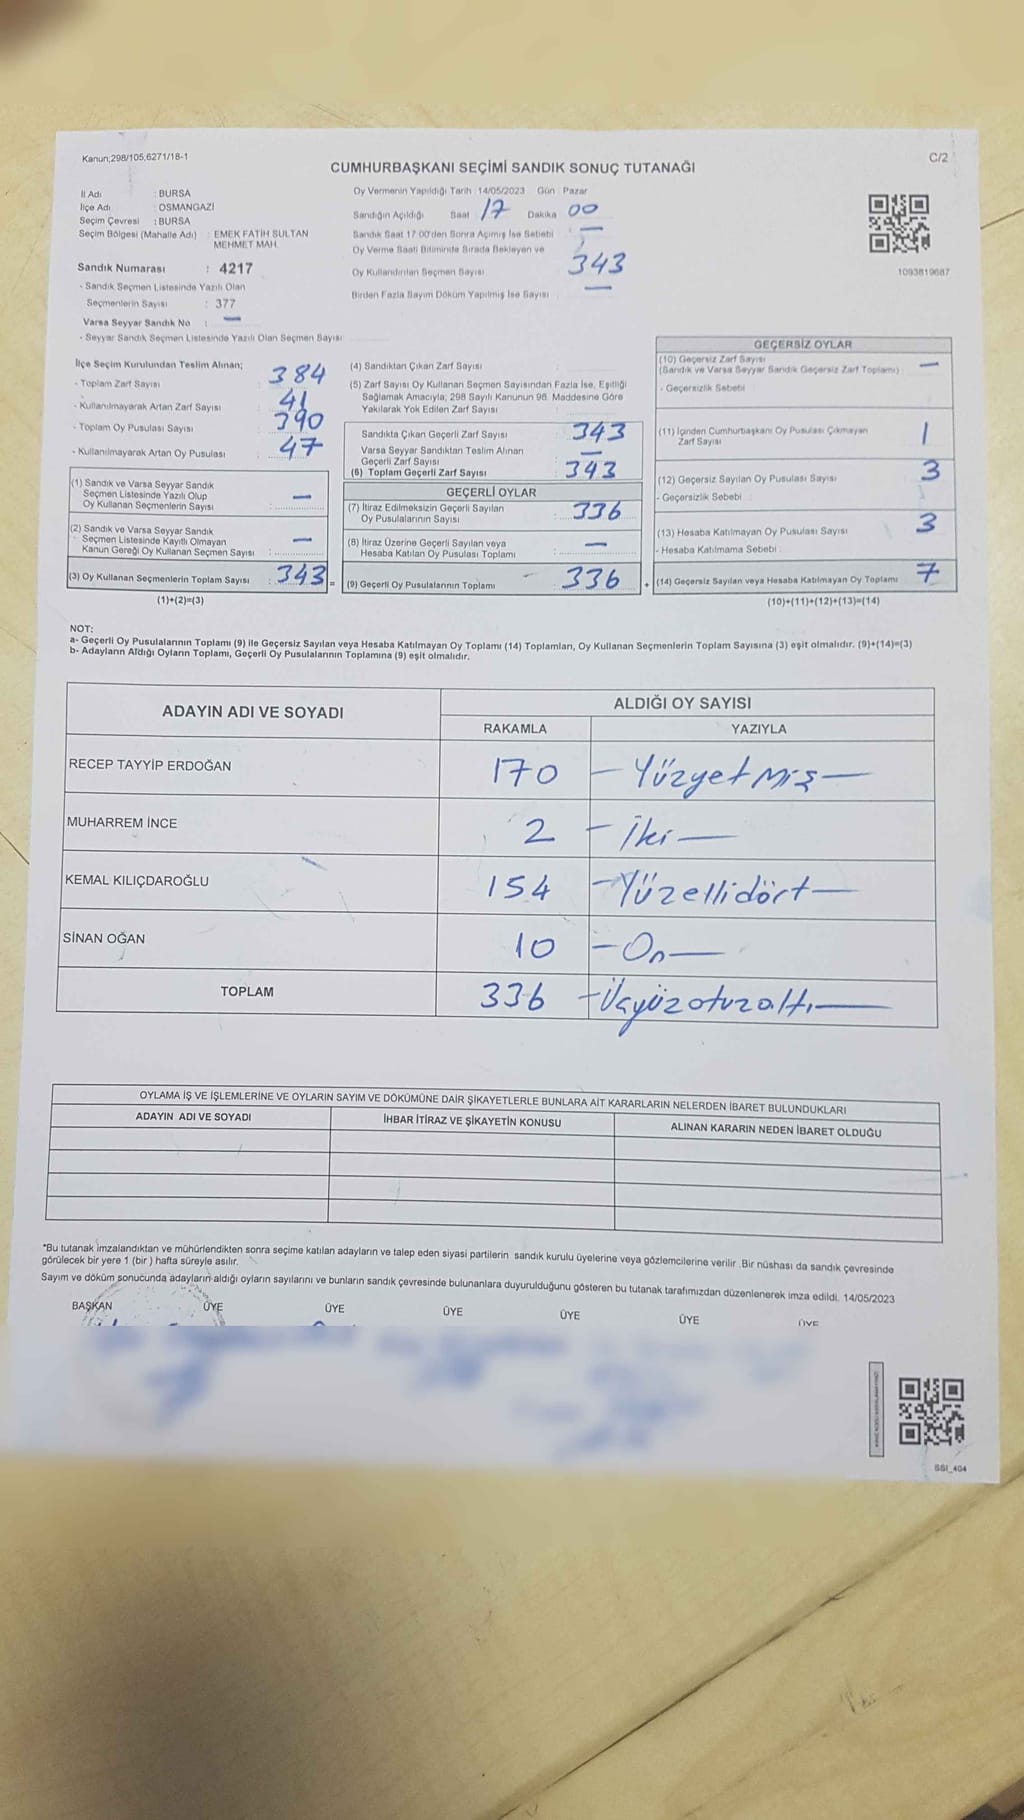 Kanun;298/105,6271/18-1
C/2
CUMHURBAŞKANI SEÇİMİ SANDIK SONUÇ TUTANAĞI
İl Adı : BURSA
İlçe Adı : OSMANGAZİ
Seçim Çevresi : BURSA
Seçim Bölgesi (Mahalle Adı) : EMEK FATİH SULTAN
MEHMET MAH.
Sandık Numarası : 4217
- Sandık Seçmen Listesinde Yazılı Olan
Seçmenlerin Sayısı : 377
Varsa Seyyar Sandık No : —
- Seyyar Sandık Seçmen Listesinde Yazılı Olan Seçmen Sayısı
Oy Vermenin Yapıldığı Tarih : 14/05/2023 Gün : Pazar
Sandığın Açıldığı Saat 17 Dakika 00
Sandık Saat 17:00'den Sonra Açımış İse Sebebi —
Oy Verme Saati Bitiminde Sırada Bekleyen ve
Oy Kullandırılan Seçmen Sayısı 343
Birden Fazla Sayım Döküm Yapılmış İse Sayısı —
1093819687
İlçe Seçim Kurulundan Teslim Alınan;
- Toplam Zarf Sayısı 384
- Kullanılmayarak Artan Zarf Sayısı 41
- Toplam Oy Pusulası Sayısı 390
- Kullanılmayarak Artan Oy Pusulası 47
(1) Sandık ve Varsa Seyyar Sandık
Seçmen Listesinde Yazılı Olup
Oy Kullanan Seçmenlerin Sayısı —
(2) Sandık ve Varsa Seyyar Sandık
Seçmen Listesinde Kayıtlı Olmayan
Kanun Gereği Oy Kullanan Seçmen Sayısı : —
(3) Oy Kullanan Seçmenlerin Toplam Sayısı : 343 =
(1)+(2)=(3)
(4) Sandıktan Çıkan Zarf Sayısı
(5) Zarf Sayısı Oy Kullanan Seçmen Sayısından Fazla İse, Eşitliği
Sağlamak Amacıyla; 298 Sayılı Kanunun 98. Maddesine Göre
Yakılarak Yok Edilen Zarf Sayısı
Sandıkta Çıkan Geçerli Zarf Sayısı : 343
Varsa Seyyar Sandıktan Teslim Alınan
Geçerli Zarf Sayısı —
(6) Toplam Geçerli Zarf Sayısı : 343
GEÇERLİ OYLAR
(7) İtiraz Edilmeksizin Geçerli Sayılan
Oy Pusulalarının Sayısı : 336
(8) İtiraz Üzerine Geçerli Sayılan veya
Hesaba Katılan Oy Pusulası Toplamı : —
(9) Geçerli Oy Pusulalarının Toplamı : 336 +
GEÇERSİZ OYLAR
(10) Geçersiz Zarf Sayısı
(Sandık ve Varsa Seyyar Sandık Geçersiz Zarf Toplamı) —
- Geçersizlik Sebebi
(11) İçinden Cumhurbaşkanı Oy Pusulası Çıkmayan
Zarf Sayısı 1
(12) Geçersiz Sayılan Oy Pusulası Sayısı 3
- Geçersizlik Sebebi
(13) Hesaba Katılmayan Oy Pusulası Sayısı 3
- Hesaba Katılmama Sebebi
(14) Geçersiz Sayılan veya Hesaba Katılmayan Oy Toplamı 7
(10)+(11)+(12)+(13)=(14)
NOT:
a- Geçerli Oy Pusulalarının Toplamı (9) ile Geçersiz Sayılan veya Hesaba Katılmayan Oy Toplamı (14) Toplamları, Oy Kullanan Seçmenlerin Toplam Sayısına (3) eşit olmalıdır. (9)+(14)=(3)
b- Adayların Aldığı Oyların Toplamı, Geçerli Oy Pusulalarının Toplamına (9) eşit olmalıdır.
ADAYIN ADI VE SOYADI
ALDIĞI OY SAYISI
RAKAMLA YAZIYLA
RECEP TAYYİP ERDOĞAN 170 — Yüzyetmiş —
MUHARREM İNCE 2 — İki —
KEMAL KILIÇDAROĞLU 154 — Yüzellidört —
SİNAN OĞAN 10 — On —
TOPLAM 336 — Üçyüzotuzaltı —
OYLAMA İŞ VE İŞLEMLERİNE VE OYLARIN SAYIM VE DÖKÜMÜNE DAİR ŞİKAYETLERLE BUNLARA AİT KARARLARIN NELERDEN İBARET BULUNDUKLARI
ADAYIN ADI VE SOYADI İHBAR İTİRAZ VE ŞİKAYETİN KONUSU ALINAN KARARIN NEDEN İBARET OLDUĞU
*Bu tutanak imzalandıktan ve mühürlendikten sonra seçime katılan adayların ve talep eden siyasi partilerin sandık kurulu üyelerine veya gözlemcilerine verilir .Bir nüshası da sandık çevresinde
görülecek bir yere 1 (bir ) hafta süreyle asılır.
Sayım ve döküm sonucunda adayların aldığı oyların sayılarını ve bunların sandık çevresinde bulunanlara duyurulduğunu gösteren bu tutanak tarafımızdan düzenlenerek imza edildi. 14/05/2023
BAŞKAN ÜYE ÜYE ÜYE ÜYE ÜYE ÜYE
SSI_404